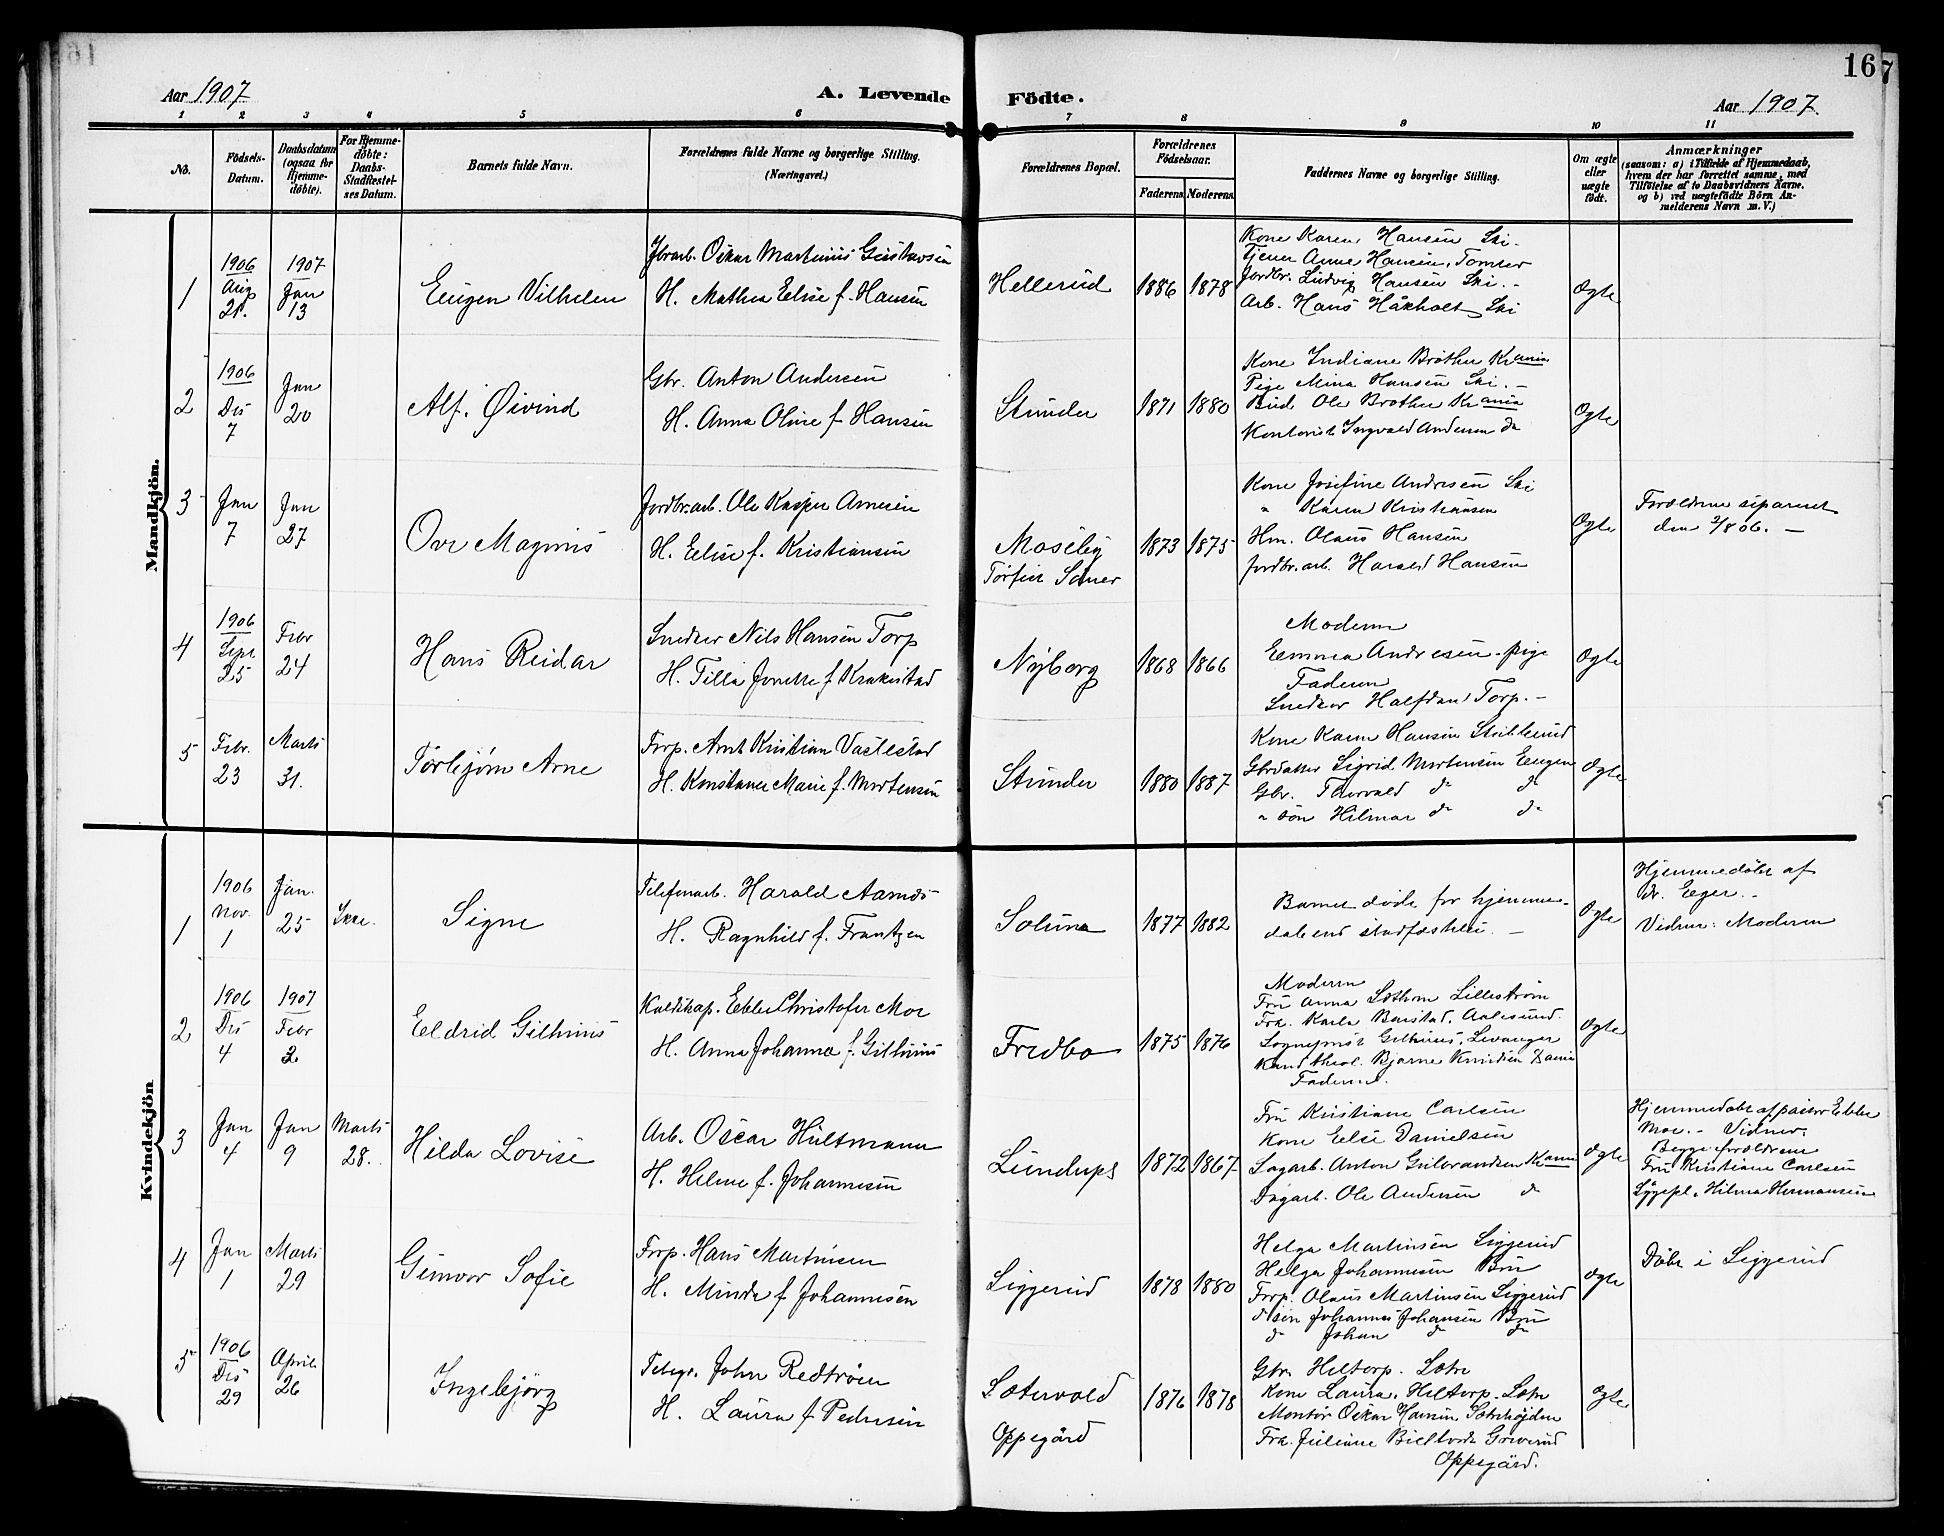 167
Aar 1907
A. Levende Födte.
Aar 1907.
1 2 3 4 5 6 7 8 9 10 11
No.
Födsels-Datum.
Daabsdatum (ogsaa for Hjemme-döbte).
For Hjemme-döbte: Daabs-Stadfæstel-ses Datum.
Barnets fulde Navn.
Forældrenes fulde Navne og borgerlige Stilling.
(Næringsvei.)
Forældrenes Bopæl.
Forældrenes Födselsaar.
Faderens. Moderens.
Faddernes Navne og borgerlige Stilling.
Om ægte eller uægte födt.
Anmærkninger
(saasom: a) i Tilfælde af Hjemmedaab,
hvem der har forrettet samme, med
Tilföielse af to Daabsvidners Navne.
og b) ved uægtefödte Börn An-
melderens Navn m. V.)
Mandkjön.
1
1906 Aug 21.
1907 Jan 13
Eugen Vilhelm
Jbrarb. Oskar Martinius Gustavsen
H. Mathea Elise f. Hansen
Hellerud
1886 1878
Kone Karen Hansen Ski.
Tjener Anne Hansen, Tomter
Jordbr. Ludvig Hansen Ski.
Arb. Hans Håkholt, Ski
Ægte
2
1906 Des 7
Jan 20
Alf. Øivind
Gbr. Anton Andersen
H. Anna Oline f Hansen
Stunder
1871 1880
Kone Indiane Bråthen Krania
Pige Mina Hansen Ski.
Bud Ole Bråthen Krania
Kontorist Ingvald Andersen do
Ægte
3
Jan 7
Jan 27
Ove Magnus
Jordbr.arb. Ole Kasper Arnesen
H. Elise f. Kristiansen
Moseby
Torfin Saner
1873 1875
Kone Josefine Andresen Ski
" Karen Kristiansen
Hm. Olaus Hansen
Jordbr.arb. Harald Hansen
Ægte
Forældrene separeret
den 2/8 06. —
4
1906 Sept 25
Febr 24
Hans Reidar
Snedker Nils Hansen Torp
H. Tilla Jonette f Krakestad
Nyborg
1868 1866
Moderen
Emma Andresen - pige
Faderen
Snedker Halfdan Torp. —
Ægte
5
Febr. 23
Marts 31.
Torbjørn Arne
Forp. Arnt Kristian Vastestad
H. Konstance Marie f. Mortensen
Stunder
1880 1887
Kone Karen Hansen
Gbrdatter Sigrid Mortensen Eugen
Gbr. Thorvald do do
" søn Hilmar do do
Ægte
Kvindekjön
1
1906 Nov. 1
Jan. 25
Ikke.
Signe
Telefonarb. Harald Aamås
H. Ragnhild f. Frantzen
Soluna
1877 1882
Barnet døde for hjemme-
daben stadfæstedes. —
Ægte
Hjemmedøbt af
dr. Eger. —
Vidner: Moderen
2
1906 Des 4
1907 Febr 2
Eldrid Gilhuus
Kaldskap. Ebbe Christofer Moe
H. Anna Johanna f. Gilhuus
Fredbo
1875 1876
Moderen
Fru Anna Sæthern Lillestrøm
Frk. Karla Barstad, Aalesund.
Sogneprst Gilhuus, Levanger
Kand theol. Bjarne Knudsen
Faderen.
Ægte
3
Jan 4
Jan 9
Marts 28.
Hilda Lovise
Arb. Oscar Hultmann
H. Helene f. Johannesen
Lundups
1872 1867
Fru Kristiane Carlsen
Kone Else Danielsen
Sagarb. Anton Gulbrandsen Krania
Dagarb. Ole Andersen do
Ægte
Hjemmedøbt af pastor Ebbe
Moe. — Vidner:
Begge forældrene
Fru Kristiane Carlsen
Sygepl. Hilma Hermansen
4
Jan 1
Marts 29
Gunvor Sofie
Forp. Hans Martinsen
H. Minda f Johannesen
Siggerud
1878 1880
Helga Martinsen Siggerud
Helga Johannesen Bru
Forp. Olaus Martinsen Siggerud
do søn Johannes Johansen Bru
do Johan do do
Ægte
Døbt i Siggerud
5
1906 Des 29
April 26
Ingebjørg
Telegr. John Redtrøen
H. Laura f Pedersen
Sætervold
Oppegård
1876 1878
Gbr. Heltorp. Sætre
Kone Laura Heltorp. Sætre
Montør Oskar Hansen Sætrehøjden
Frk. Juliane
Oppegård.
Ægte